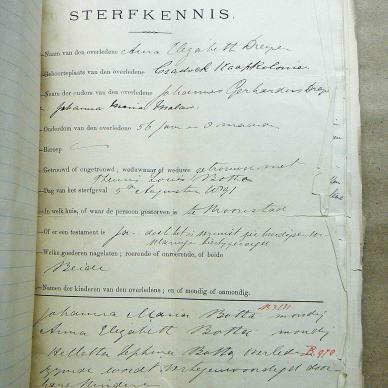 STERFKENNIS.
—Naam van den overledene Anna Elizabeth Dreyer
—Geboorteplaats van den overledene Cradock Kaapkolonie.
—Naam der ouders van den overledene Johannes Gerhardus Dreyer
n Johanna Maria
—Ouderdom van den overledene 56 jaar n 3 maanden
—Beroep
—Getrouwd of ongetrouwd; weduwnaar of weduwe getrouwd met
Theunis Louis Botha
—Dag van het sterfgeval 5de Augustus 1891
—In welk huis, of waar de persoon gestorven is te Kroonstad
—Of er een testament is ja- doch het is vermist
—Welke goederen nagelaten; roerende of onroerende, of beide
Beide
—Namen der kinderen van den overledene; en of mondig of onmondig.
Johanna Maria Botha mondig
Anna Elizabeth Botha mondig
Helletta Sophina Botha overleden B.980
zijnde wordt vertegenwoordigd door
hare kinderen